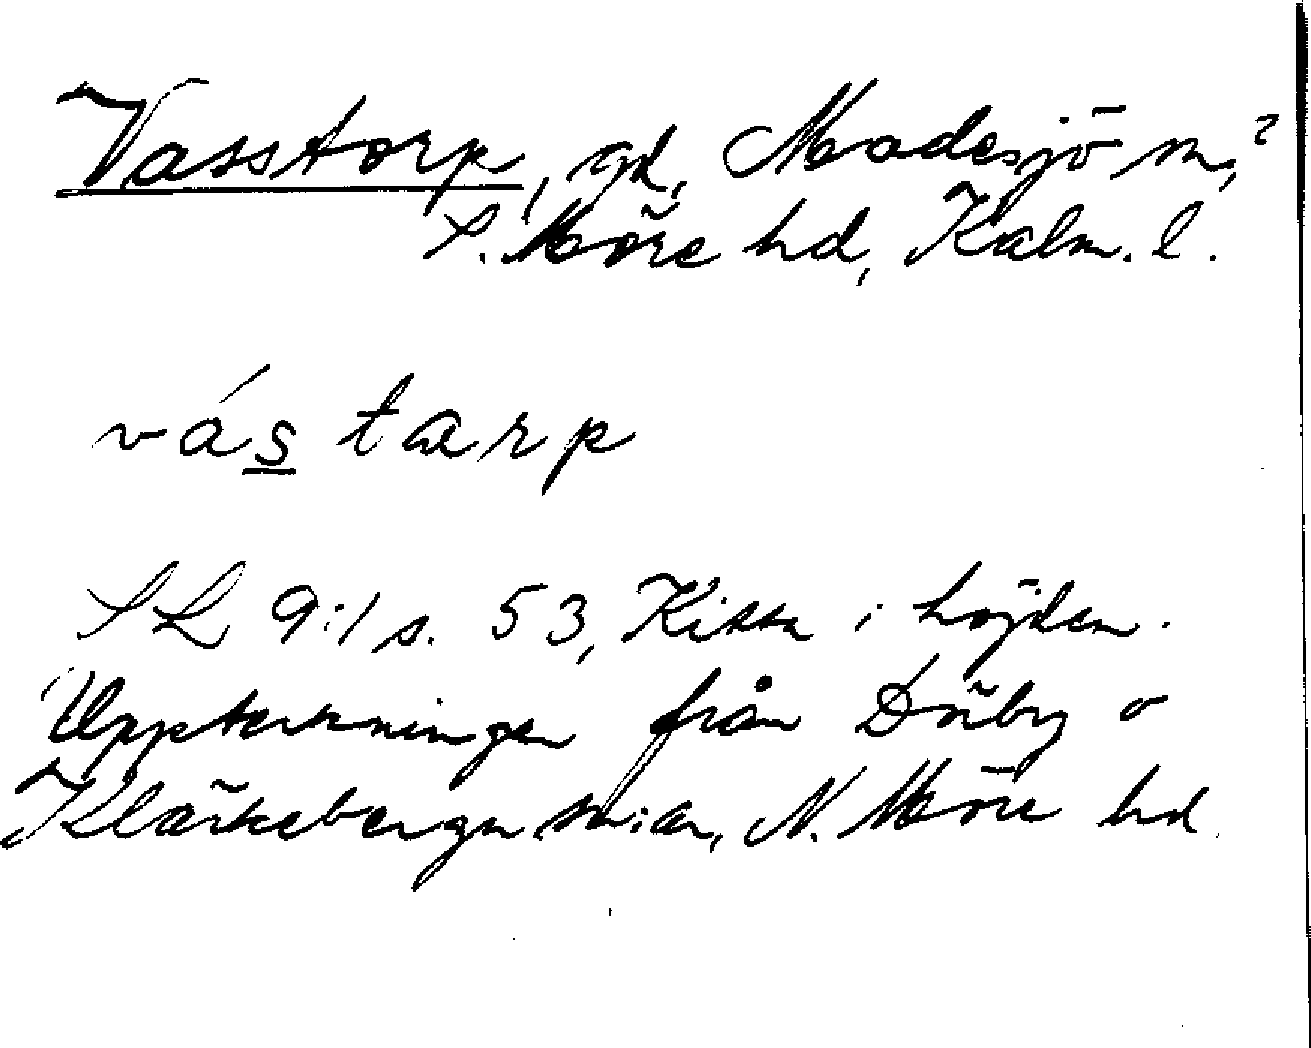 Vasstorp, gd, Madesjö sn,?
S. Möre hd, Kalm. l.
vás tarp
SL 9:1 s. 53, Kista i höjden.
Uppteckningar från Dörby o
Kläckeberga sn:ar, N. Möre hd.